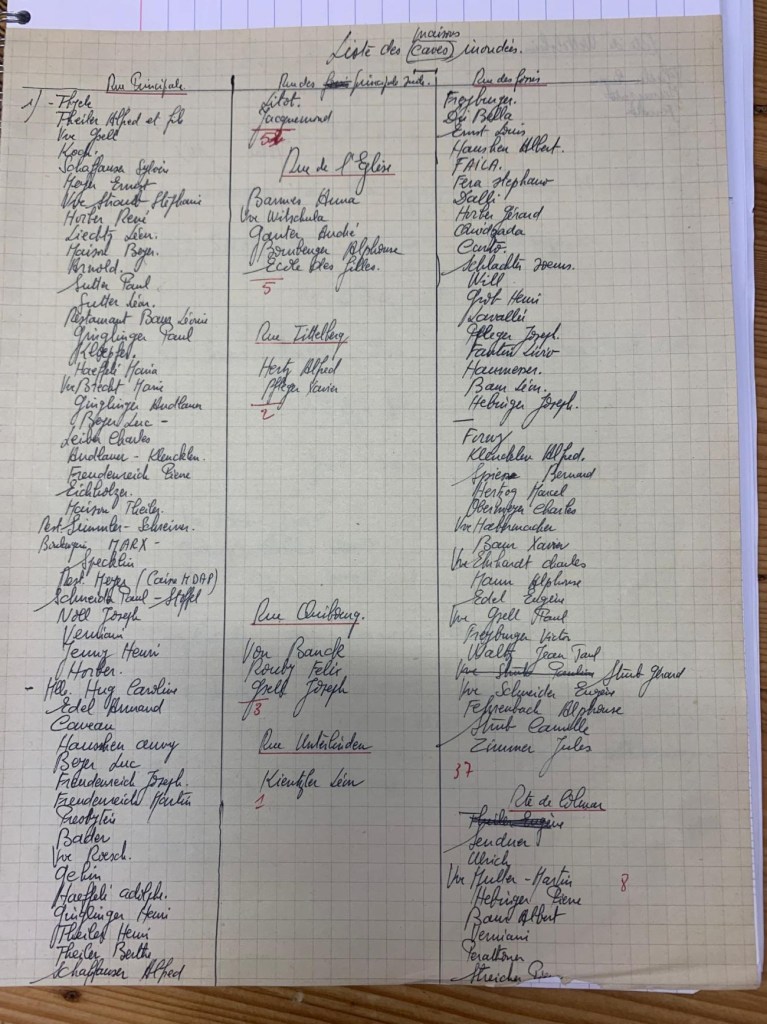 Liste des (caves) inondées.
maisons
Rue Principale
1) - Flyck
Theiler Alfred et fils
Vve Gsell
Koch.
Schaffauser Sylvère
Meyer Ernest
Vve Straub Stéphanie
Horber René
Liechty Léon.
Maison Beyer.
Arnold.
Sutter Paul
Sutter Léon.
Restaurant Baur Léonie
Ginglinger Paul
Kloepfer.
Haefféli Maria
Vve Brecht Marie
Ginglinger Andlauer
Beyer Luc -
Leiber Charles
Andlauer - Klencklen.
Freudenreich Pierre
Eichholzer.
Maison Theiler.
Rest. Simmler - Schreiner.
Boulangerie MARX -
Specklin
Rest. Meyer (Caisse MDAP)
Schneider Paul - Stoffel
Noll Joseph
Yenny Henri
Horber.
- Melle. Hug Caroline
Edel Armand
Caveau
Hausherr
Beyer Luc
Freudenreich Joseph.
Freudenreich Martin
Presbytère
Bader
Vve Roesch.
Gehin
Haefféli Adolphe.
Ginglinger Henri
Theiler Henri
Theiler Berthe
Schaffauser Alfred
Rue des principale
Litot.
Jacquemond
Rue de l'Eglise
Barmes Anna
Vve Witschula
Ganter André
Bomberger Alphonse
Ecole des filles.
5
Rue Tittelberg
Hertz Alfred
Pfleger Xavier
2
Rue
Von Banck
Rouby Felix
Gsell Joseph
3
Rue Unterlinden
Kientzler Léon
1
Rue des fossés
Freyburger.
Di Bella
Ernst Louis
Hausherr Albert.
FAILA.
Fera Stephano
Dalli
Horber Gérard
Canto.
Schlachter
Will
Grob Henri
Lavallée
Pfleger Joseph.
Fantin Livio
Haumesser.
Baur Léon.
Hebinger Joseph.
Klencklen Alfred.
Bernard
Hertzog Marcel
Obermeyer Charles
Vve Habermacher
Baur Xavier
Vve Ehrhardt Charles
Mann Alphonse
Edel Eugène
Vve Gsell Paul
Freyburger Victor
Waltz Jean Paul
Vve Stirub Gérard
Vve Schneider Eugène
Fehrenbach Alphonse
Camille
Zimmer Jules
37
Rte de Colmar
Theiler Eugène
Sendner
Ulrich
Vve Muller - Martin
8
Hebinger Pierre
Baur Albert
Damiani
Streicher